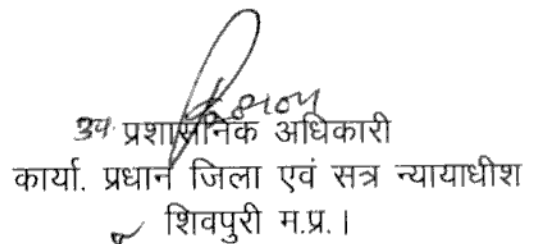 उप. प्रशासनिक अधिकारी
कार्या. प्रधान जिला एवं सत्र न्यायाधीश
शिवपुरी म.प्र. ।